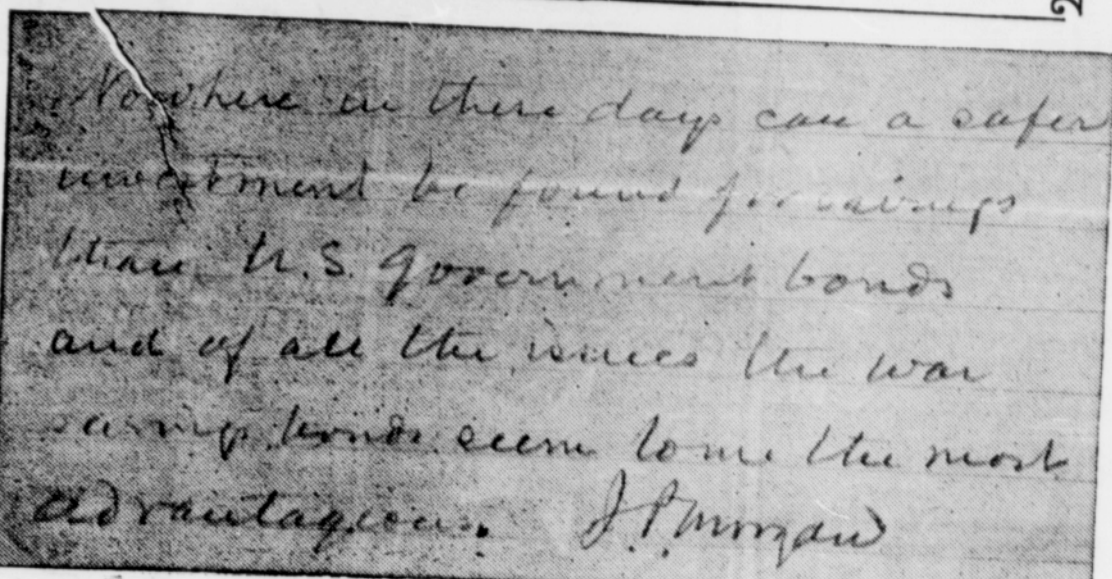 Nowhere in these days can a safer
investment be found for savings
than U.S. Government bonds
and of all the issues the war
savings bonds seem to me the most
advantageous. J. P. Morgan
2